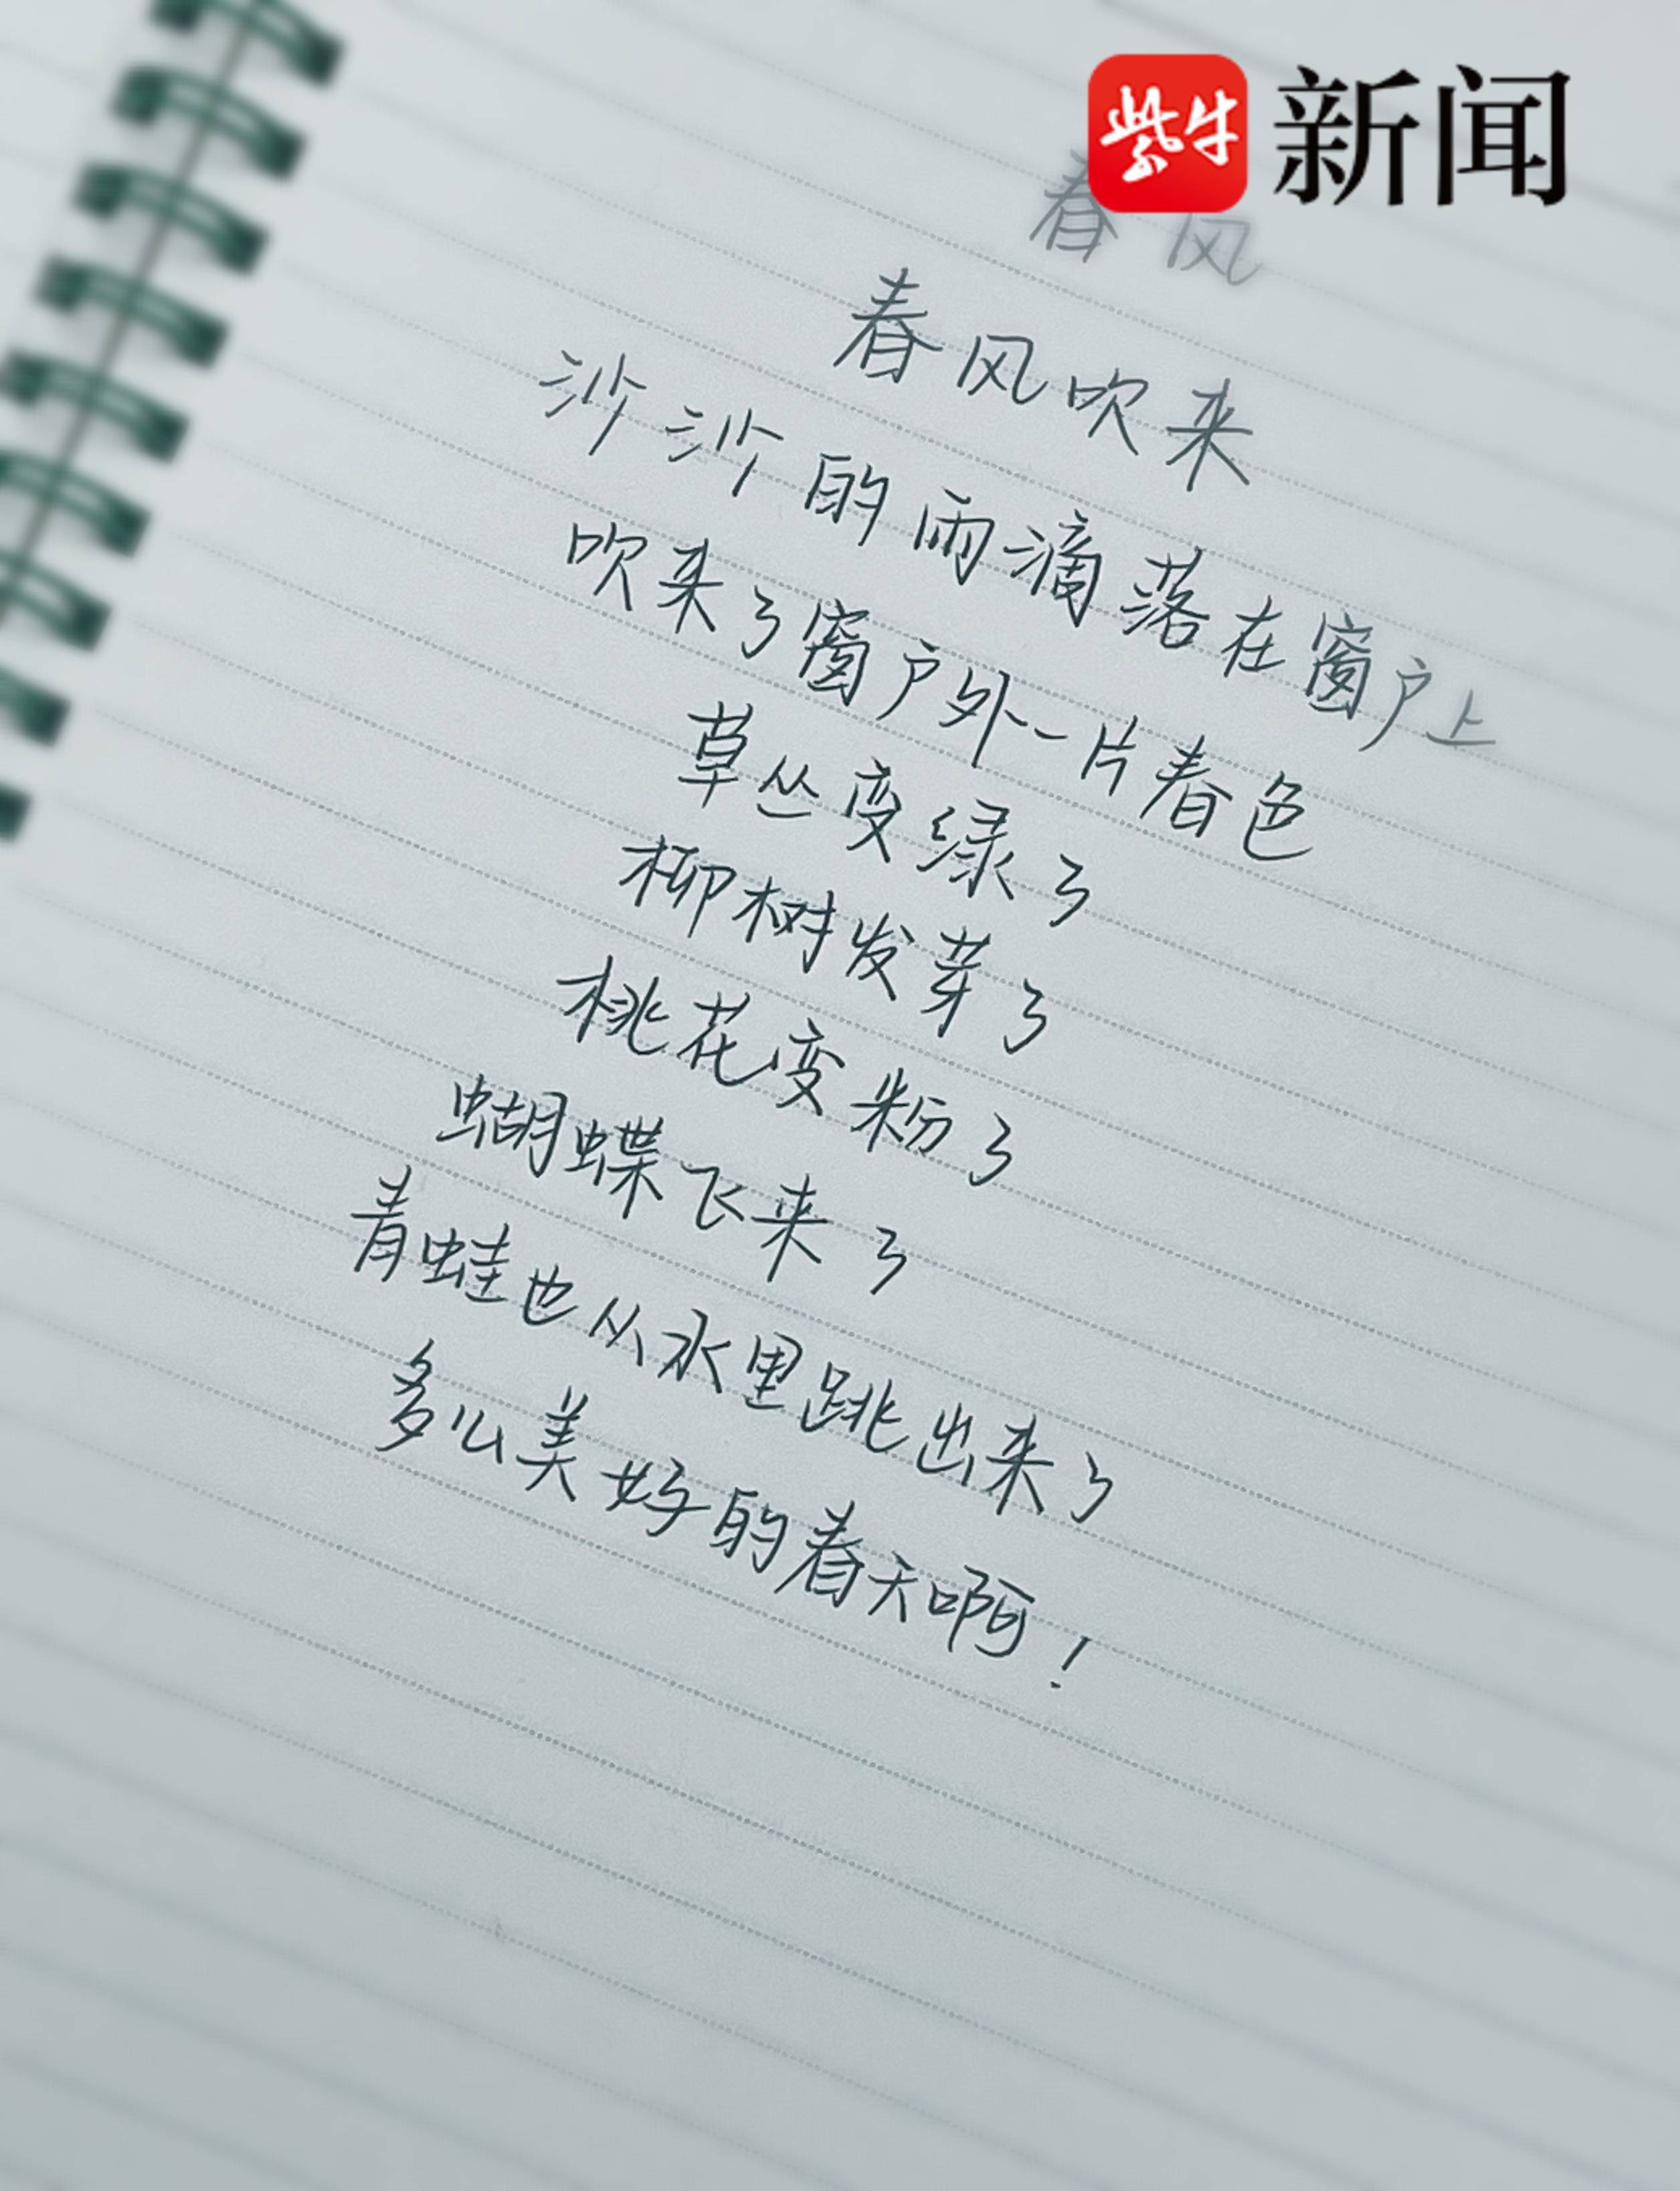 紫牛新闻
春风
春风吹来
沙沙的雨滴落在窗户上
吹来了窗户外一片春色
草丛变绿了
柳树发芽了
桃花变粉了
蝴蝶飞来了
青蛙也从水里跳出来了
多么美好的春天啊！